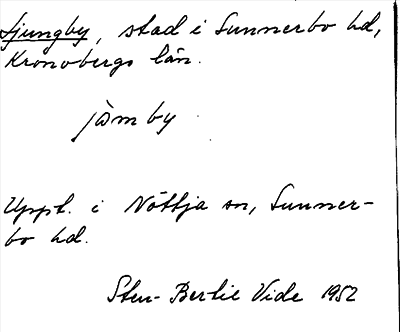 Ljungby, stad i Sunnerbo hd,
Kronobergs län.
jòmby
Uppt. i Nöttja sn, Sunner-
bo hd.
Sten-Bertil Vide 1952